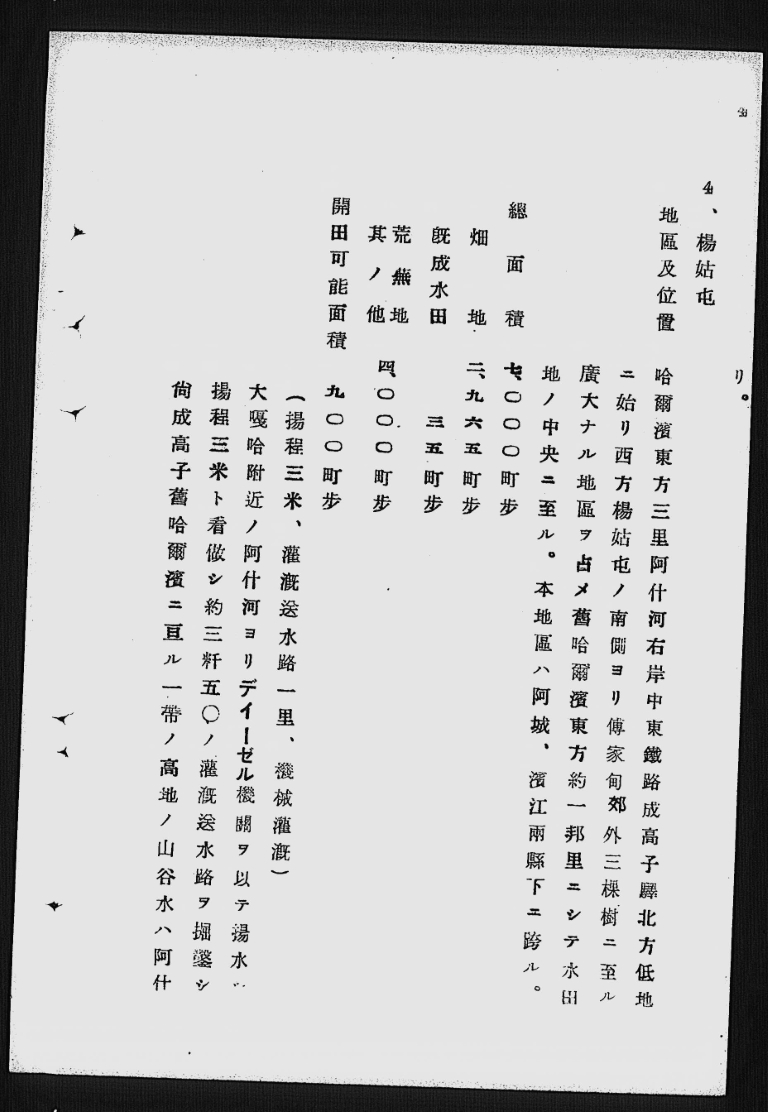 リ。
4、楊姑屯
地區及位置　哈爾濱東方三里阿什河右岸中東鐵路成高子驛北方低地
ニ始リ西方楊姑屯ノ南側ヨリ傅家甸郊外三棵樹ニ至ル
廣大ナル地區ヲ占メ舊哈爾濱東方約一邦里ニシテ水田
地ノ中央ニ至ル。本地區ハ阿城、濱江兩縣下ニ跨ル。
總面積　七、〇〇〇町步
畑地　二、九六五町步
既成水田　三五町步
荒蕪地
其ノ他　四、〇〇〇町步
開田可能面積　九〇〇町步
（揚程三米、灌漑送水路一里、機械灌漑）
大嘎哈附近ノ阿什河ヨリデイーゼル機關ヲ以テ揚水シ
揚程三米ト看做シ約三粁五〇ノ灌漑送水路ヲ掘鑿シ
尙成高子舊哈爾濱ニ亘ル一帶ノ高地ノ山谷水ハ阿什